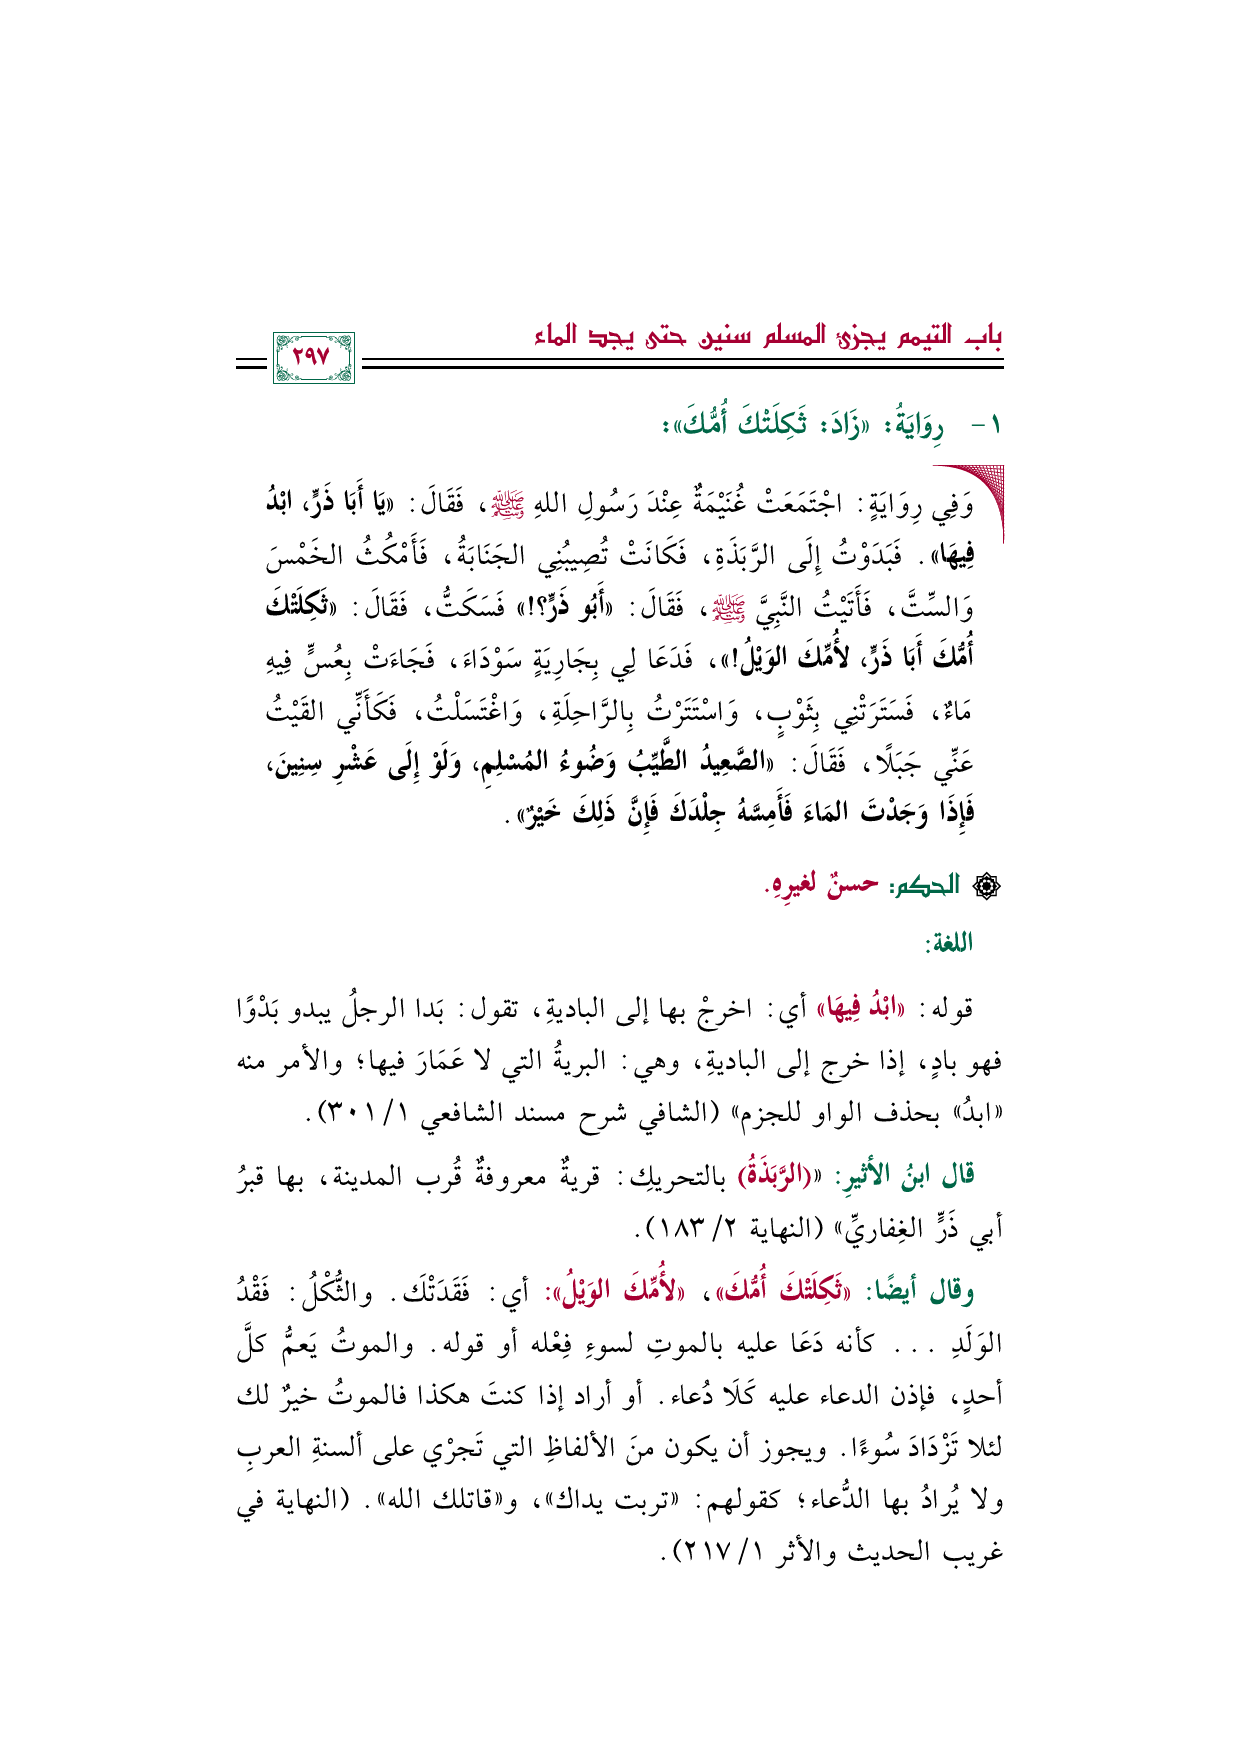 باب التيمم يجزئ المسلم سنين حتى يجد الماء
٢٩٧
١- رِوَايَةُ: «زَادَ: ثَكِلَتْكَ أُمُّكَ»:
وَفِي رِوَايَةٍ: اجْتَمَعَتْ غُنَيْمَةٌ عِنْدَ رَسُولِ اللهِ ﷺ، فَقَالَ: «يَا أَبَا ذَرٍّ، ابْدُ
فِيهَا». فَبَدَوْتُ إِلَى الرَّبَذَةِ، فَكَانَتْ تُصِيبُنِي الجَنَابَةُ، فَأَمْكُثُ الخَمْسَ
وَالسِّتَّ، فَأَتَيْتُ النَّبِيَّ ﷺ، فَقَالَ: «أَبُو ذَرٍّ؟!» فَسَكَتُّ، فَقَالَ: «ثَكِلَتْكَ
أُمُّكَ أَبَا ذَرٍّ، لأُمِّكَ الوَيْلُ!»، فَدَعَا لِي بِجَارِيَةٍ سَوْدَاءَ، فَجَاءَتْ بِعُسٍّ فِيهِ
مَاءٌ، فَسَتَرَتْنِي بِثَوْبٍ، وَاسْتَتَرْتُ بِالرَّاحِلَةِ، وَاغْتَسَلْتُ، فَكَأَنِّي القَيْتُ
عَنِّي جَبَلًا، فَقَالَ: «الصَّعِيدُ الطَّيِّبُ وَضُوءُ المُسْلِمِ، وَلَوْ إِلَى عَشْرِ سِنِينَ،
فَإِذَا وَجَدْتَ المَاءَ فَأَمِسَّهُ جِلْدَكَ فَإِنَّ ذَلِكَ خَيْرٌ».
الحكم: حسنٌ لغيرِهِ.
اللغة:
قوله: «ابْدُ فِيهَا» أي: اخرجْ بها إلى الباديةِ، تقول: بَدا الرجلُ يبدو بَدْوًا
فهو بادٍ، إذا خرج إلى الباديةِ، وهي: البريةُ التي لا عَمَارَ فيها؛ والأمر منه
«ابدُ» بحذف الواو للجزم» (الشافي شرح مسند الشافعي ١/ ٣٠١).
قال ابنُ الأثيرِ: «(الرَّبَذَةُ) بالتحريكِ: قريةٌ معروفةٌ قُرب المدينة، بها قبرُ
أبي ذَرٍّ الغِفاريِّ» (النهاية ٢/ ١٨٣).
وقال أيضًا: «ثَكِلَتْكَ أُمُّكَ»، «لأُمِّكَ الوَيْلُ»: أي: فَقَدَتْكَ. والثُّكْلُ: فَقْدُ
الوَلَدِ ... كأنه دَعَا عليه بالموتِ لسوءِ فِعْله أو قوله. والموتُ يَعمُّ كلَّ
أحدٍ، فإذن الدعاء عليه كَلَا دُعاء. أو أراد إذا كنتَ هكذا فالموتُ خيرٌ لك
لئلا تَزْدَادَ سُوءًا. ويجوز أن يكون منَ الألفاظِ التي تَجرْي على ألسنةِ العربِ
ولا يُرادُ بها الدُّعاء؛ كقولهم: «تربت يداك»، و«قاتلك الله». (النهاية في
غريب الحديث والأثر ١/ ٢١٧).